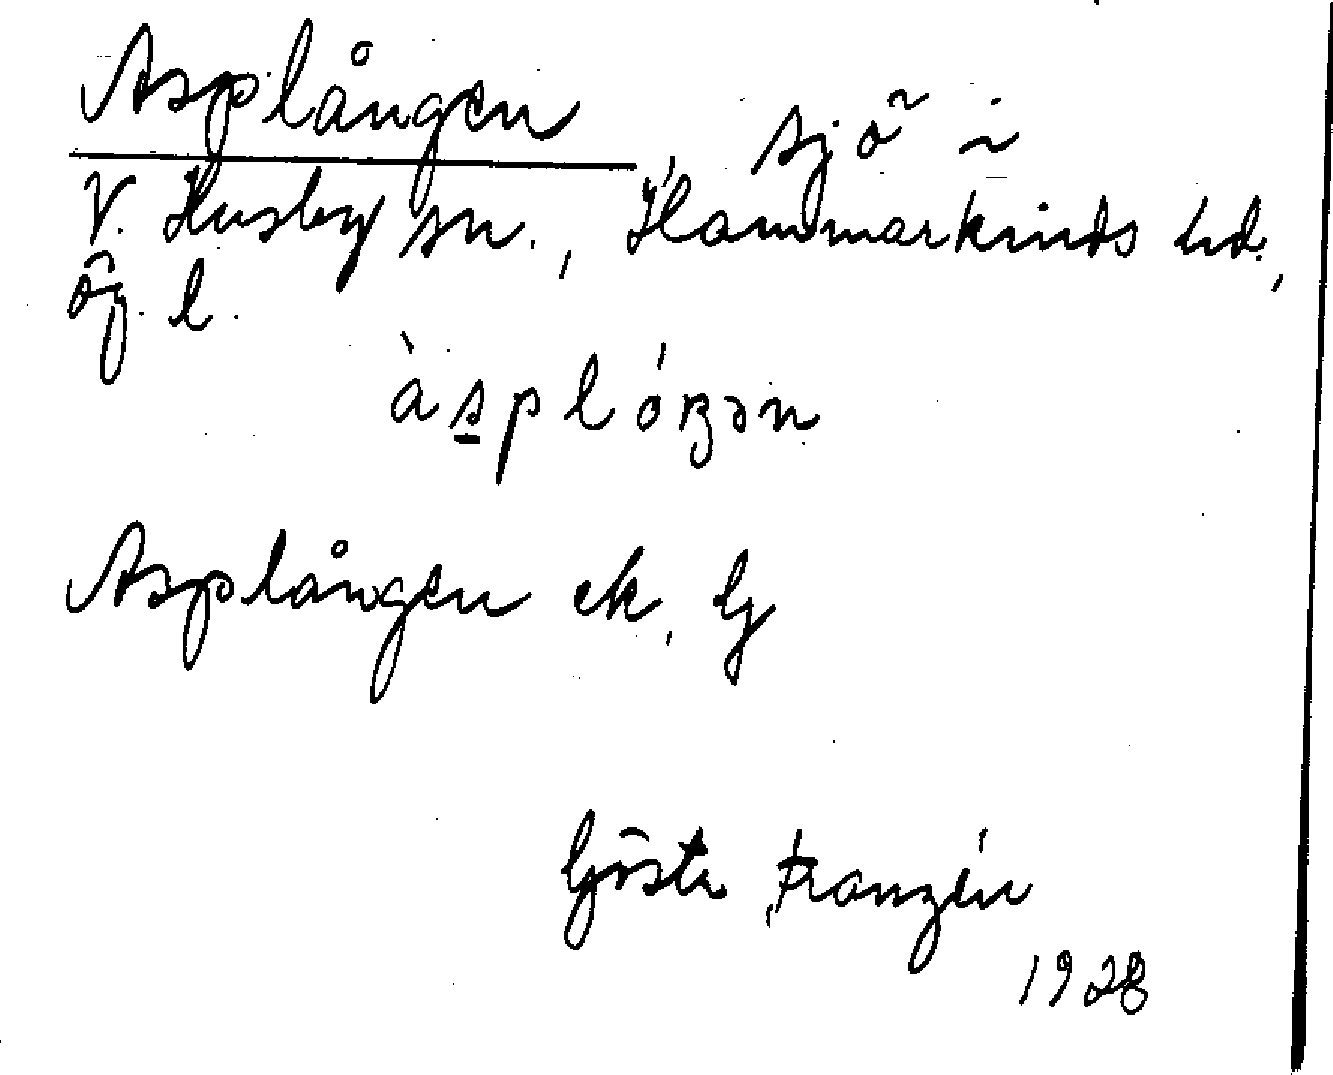 Asplången, sjö i
V. Husby sn., Hammarkinds hd.,
Ög. l.
àsplóŋən
Asplången ek, G
Gösta Franzén
1928